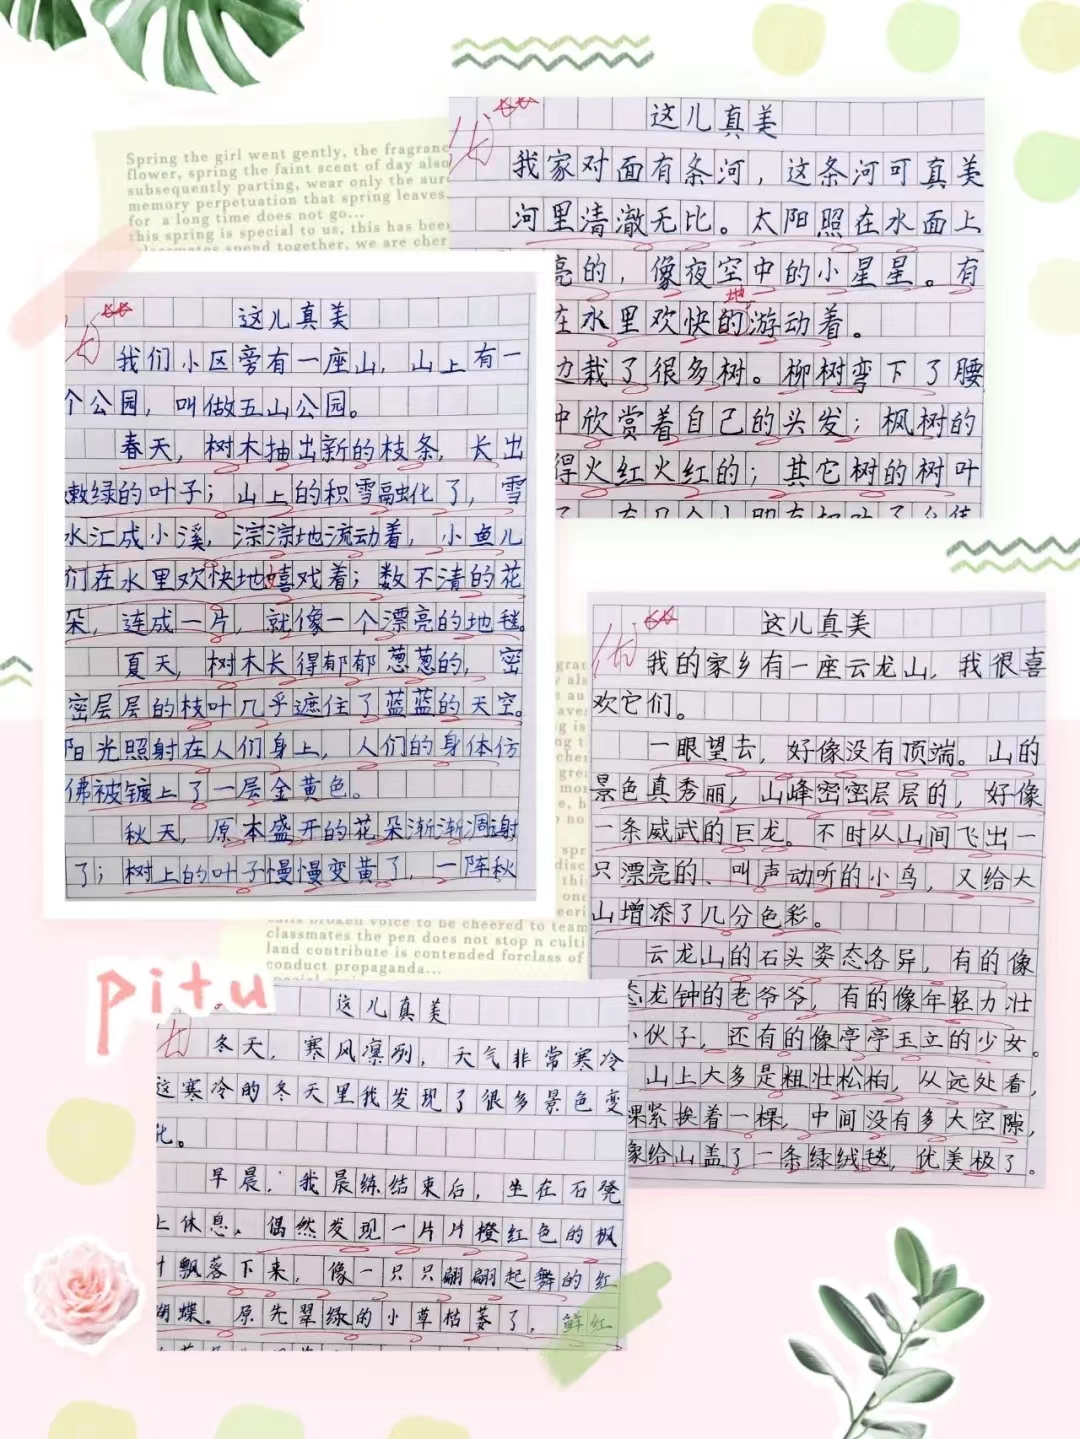 Spring the girl went gently, the fragranc
flower, spring the faint scent of day also
subsequently parting, wear only the aur
memory perpetuation that spring leaves.
for a long time does not go...
this spring is special to us, this has been
这儿真美
我家对面有条河，这条河可真美
河里清澈无比。太阳照在水面上
亮的，像夜空中的小星星。有
在水里欢快的游动着。
地
边栽了很多树。柳树弯下了腰
中欣赏着自己的头发；枫树的
得火红火红的；其它树的树叶
这儿真美
我们小区旁有一座山，山上有一
个公园，叫做五山公园。
春天，树木抽出新的枝条，长出
嫩绿的叶子；山上的积雪融化了，雪
水汇成小溪，淙淙地流动着，小鱼儿
们在水里欢快地嬉戏着；数不清的花
朵，连成一片，就像一个漂亮的地毯。
夏天，树木长得郁郁葱葱的，密
密层层的枝叶几乎遮住了蓝蓝的天空。
阳光照射在人们身上，人们的身体仿
佛被镀上了一层金黄色。
秋天，原本盛开的花朵渐渐凋谢
了；树上的叶子慢慢变黄了，一阵秋
这儿真美
我的家乡有一座云龙山，我很喜
欢它们。
一眼望去，好像没有顶端。山的
景色真秀丽，山峰密密层层的，好像
一条威武的巨龙。不时从山间飞出一
只漂亮的、叫声动听的小鸟，又给大
山增添了几分色彩。
云龙山的石头姿态各异，有的像
态龙钟的老爷爷，有的像年轻力壮
小伙子，还有的像亭亭玉立的少女。
山上大多是粗壮松柏，从远处看，
棵紧挨着一棵，中间没有多大空隙，
像给山盖了一条绿绒毯，优美极了。
calls broken voice to be cheered to team
classmates the pen does not stop n culti
land contribute is contended forclass of
conduct propaganda...
pitu
这儿真美
冬天，寒风凛冽，天气非常寒冷
这寒冷的冬天里我发现了很多景色变
化。
早晨，我晨练结束后，坐在石凳
上休息，偶然发现一片片橙红色的枫
叶飘落下来，像一只只翩翩起舞的红
蝴蝶。原先翠绿的小草枯萎了，鲜红